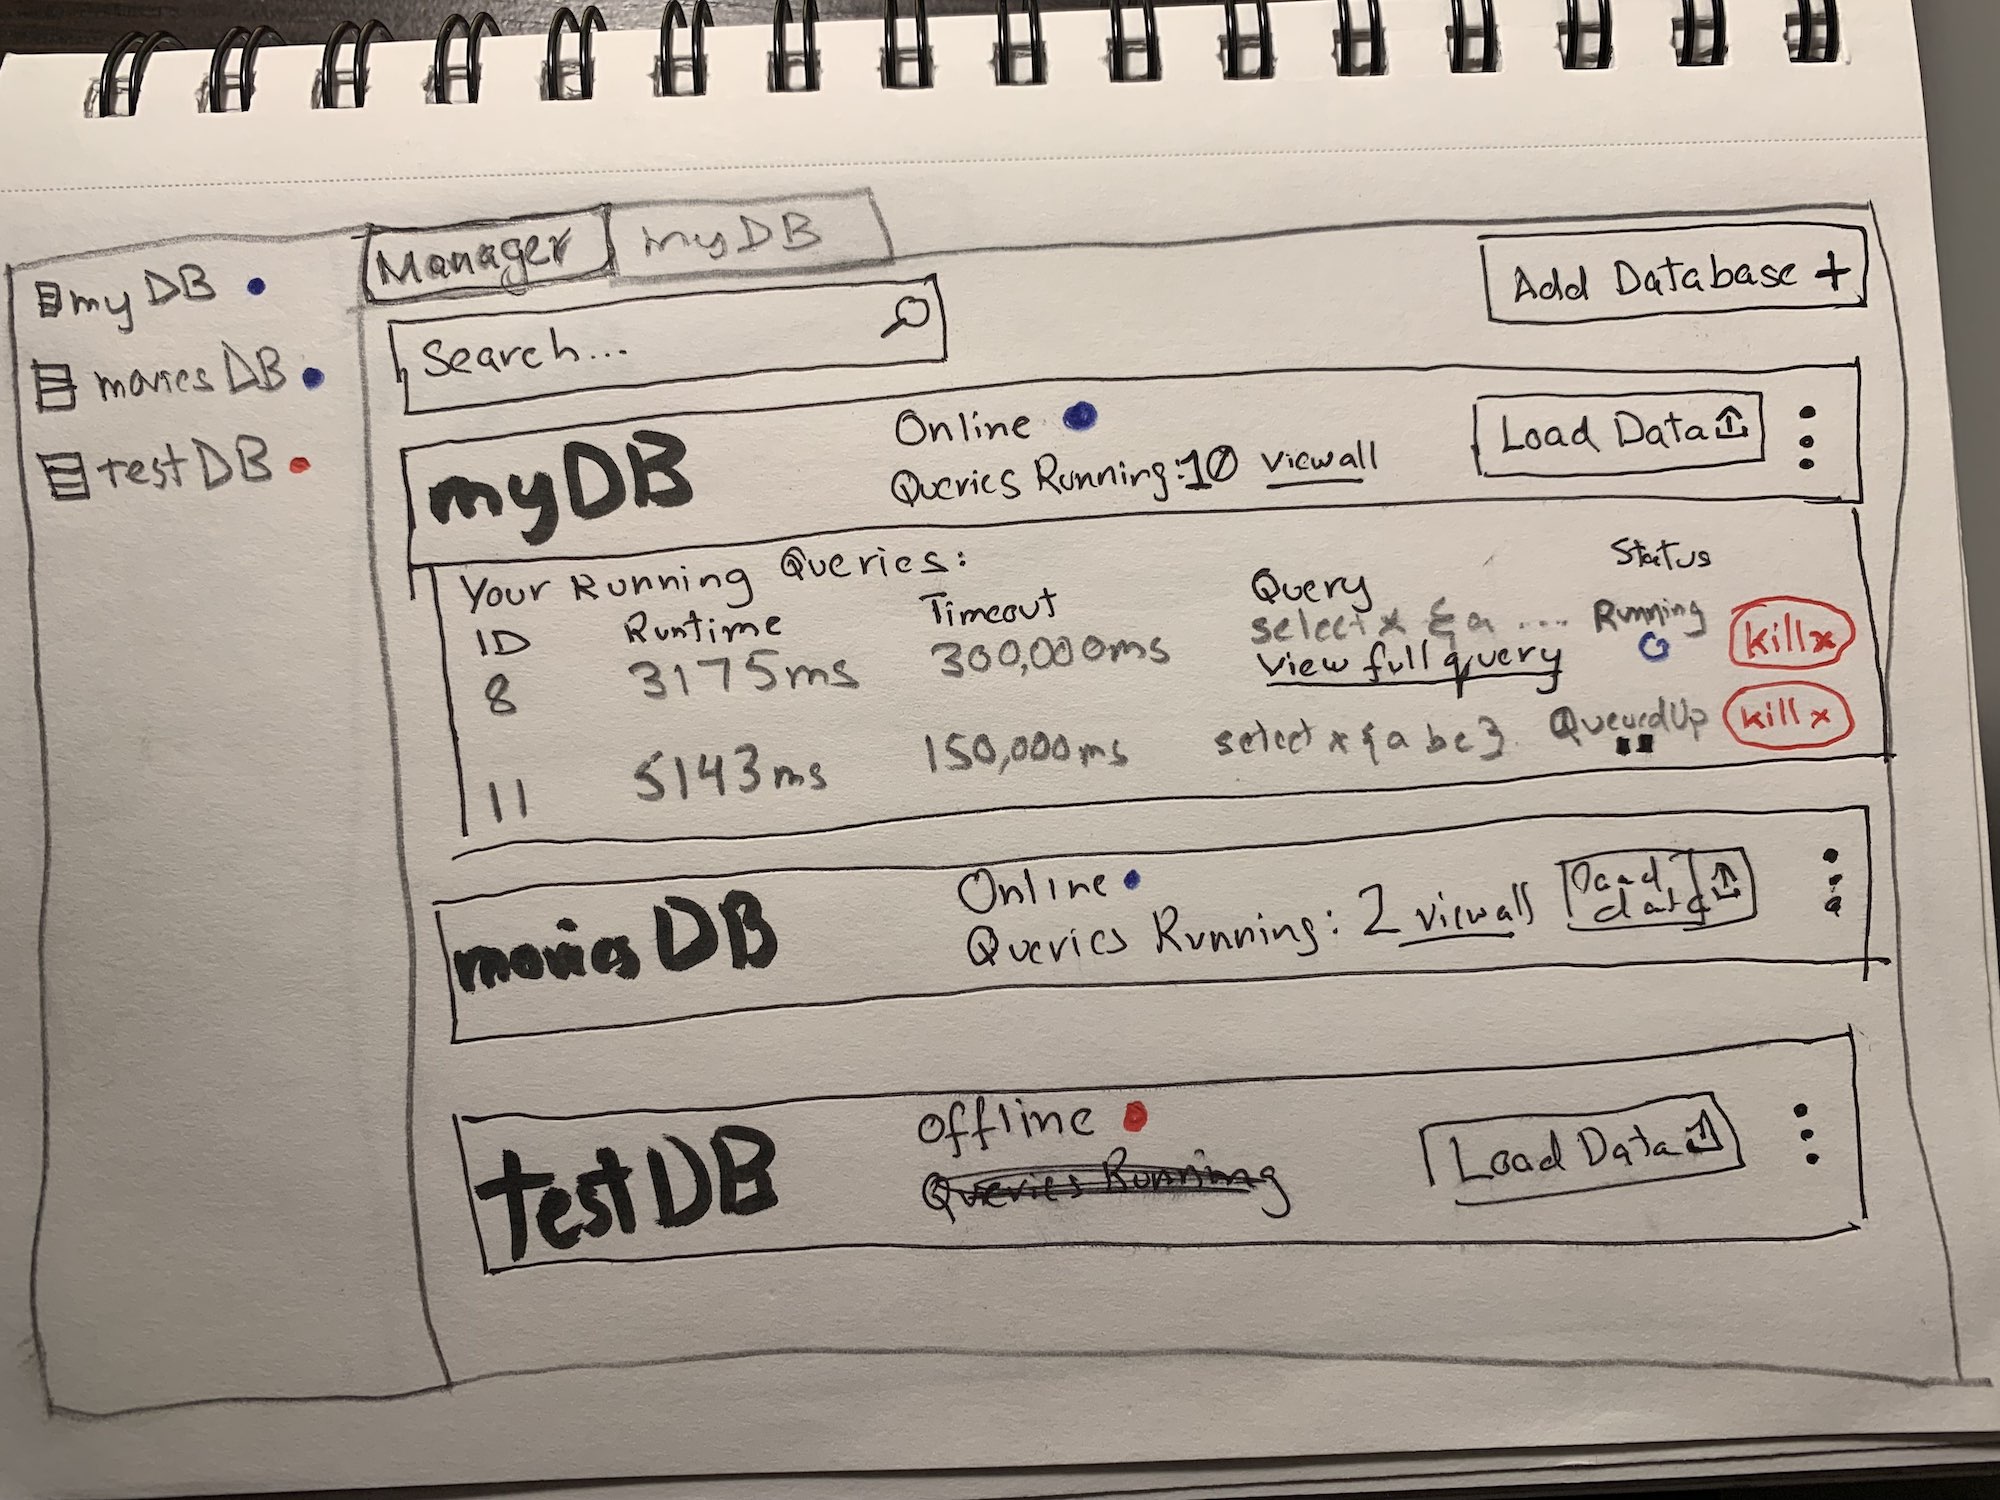 myDB
moviesDB
testDB
Manager
myDB
Search...
Add Database +
myDB
Online
Queries Running:10 view all
Load Data
Your Running Queries:
ID Runtime Timeout Query Status
8 3175ms 300,000ms select x { a ... Running kill x
view full query
11 5143ms 150,000ms select x { a b c }. Queued Up kill x
moviesDB
Online
Queries Running: 2 view all
load data
testDB
offline
Queries Running
Load Data